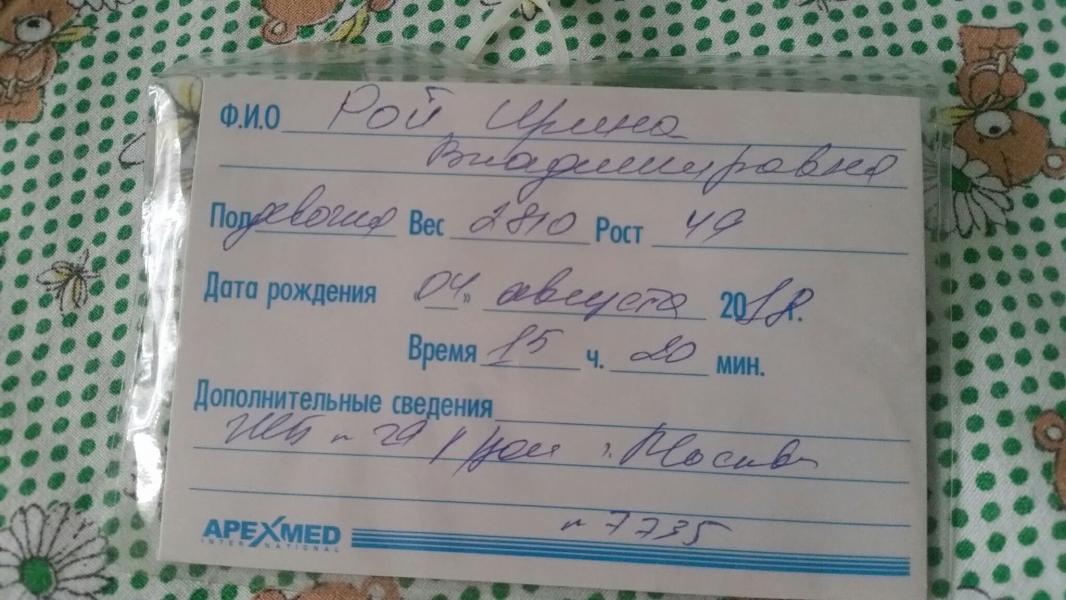 Ф.И.О Рой Ирина
Владимировна
Пол девочка Вес 2810 Рост 49
Дата рождения «04» августа 2018г.
Время 15 ч. 20 мин.
Дополнительные сведения
г. Москвы
APEXMED
INTERNATIONAL
n 7735